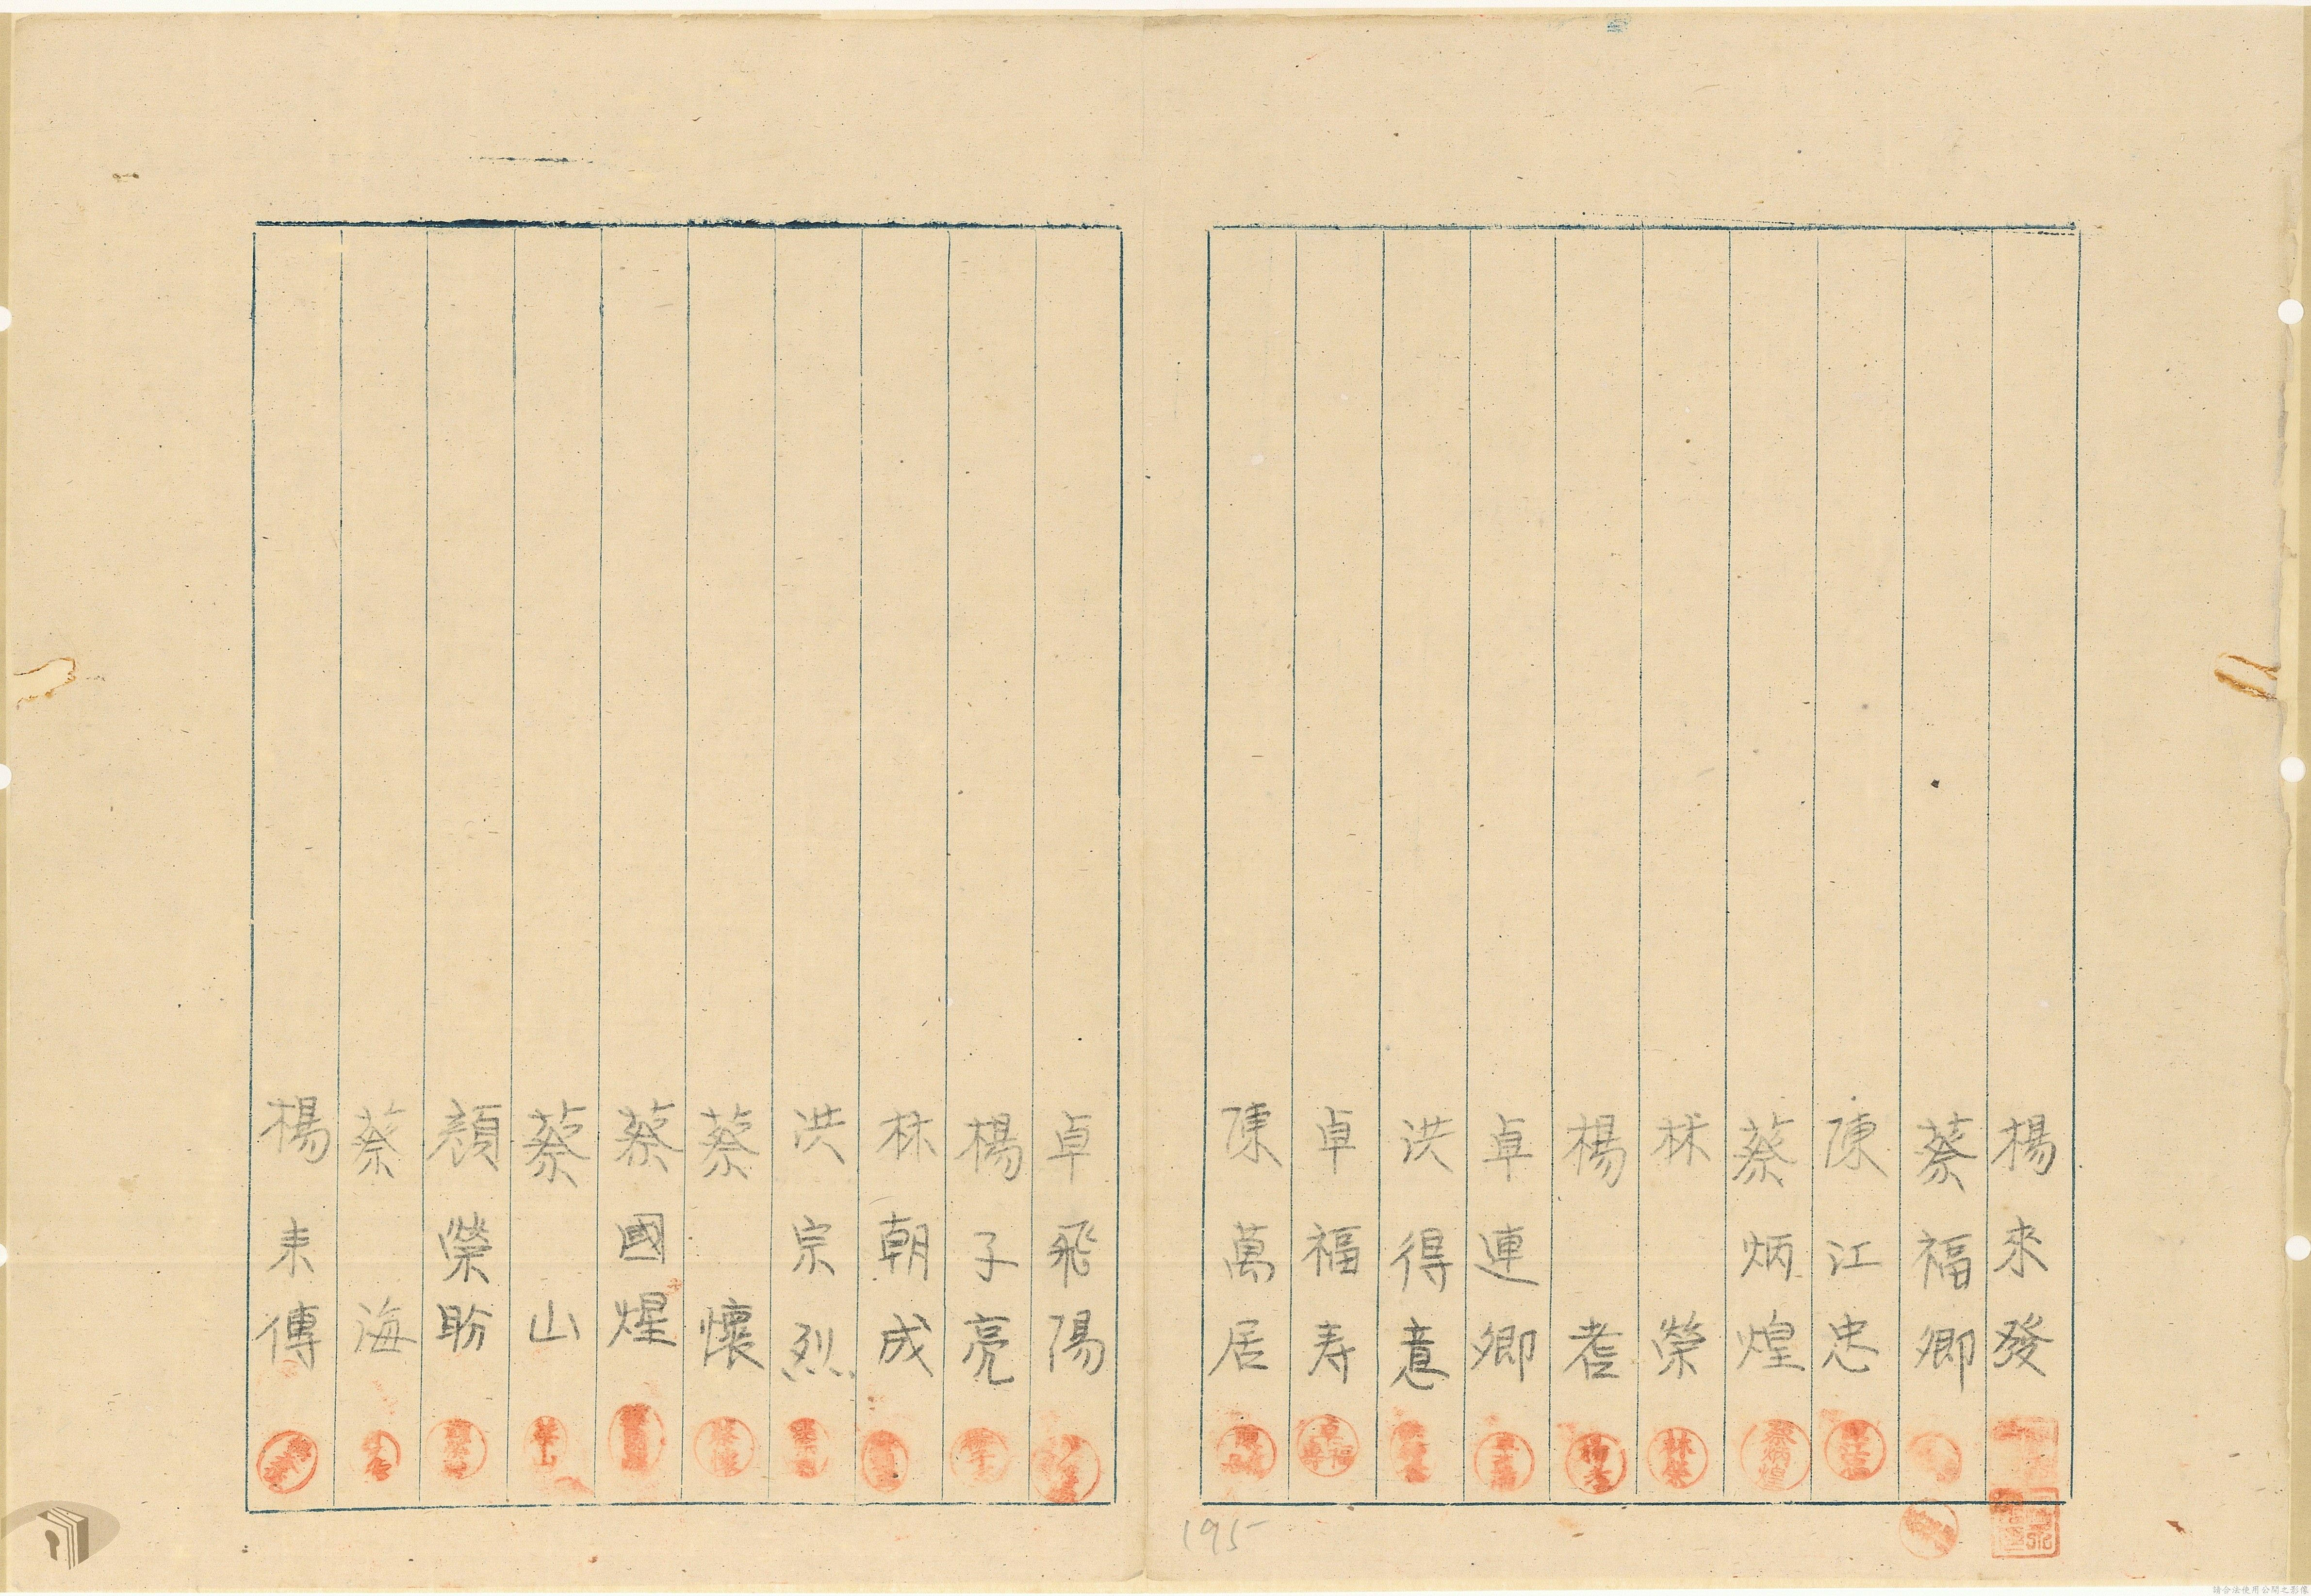 楊來發
蔡福卿
陳江忠
蔡炳煌
林榮
楊耆
卓連卿
洪得意
卓福寿
陳萬居
卓飛陽
楊子亮
林朝成
洪宗烈
蔡懷
蔡國煋
蔡山
顏榮盼
蔡海
楊耒傳
195
請合法使用公開之影像